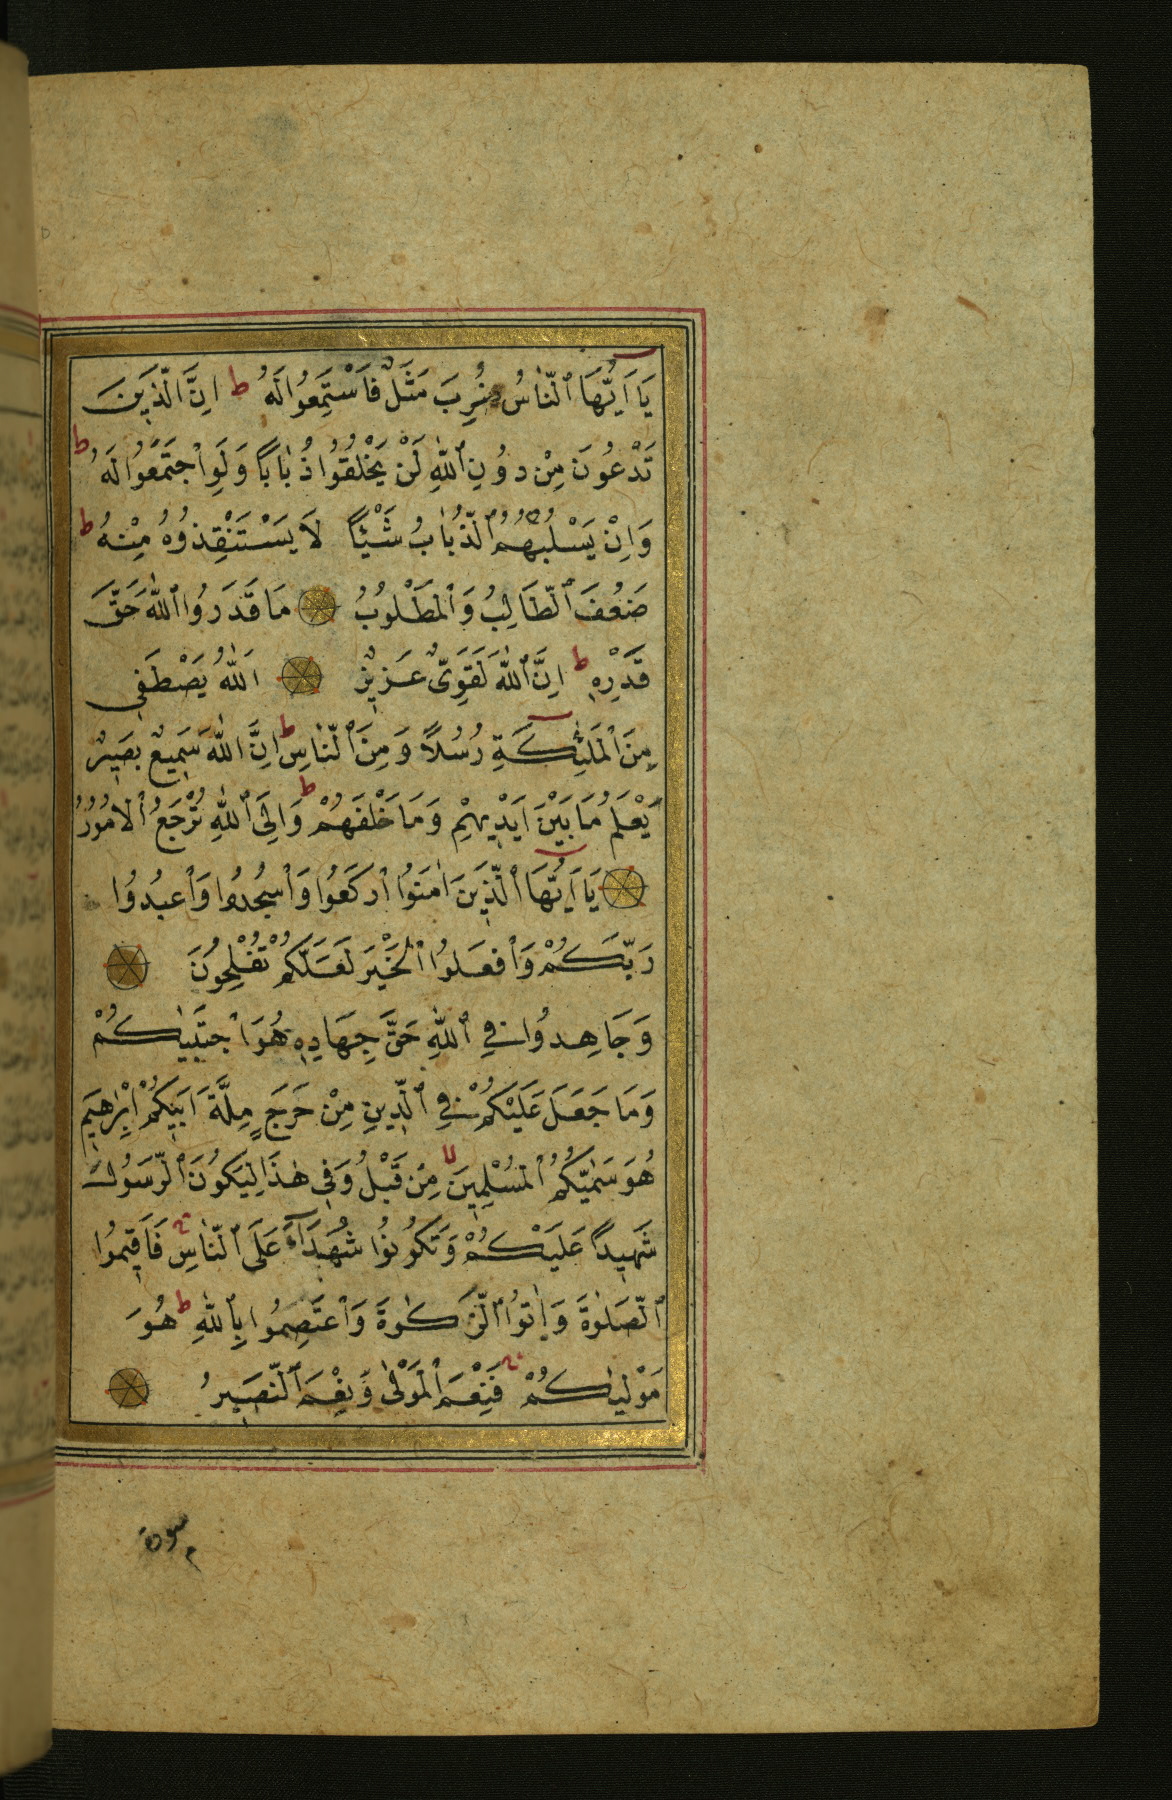 يَا اَيُّهَا ٱلنَّاسُ ضُرِبَ مَثَلٌ فَاسْتَمِعُوا لَهُ ط اِنَّ الَّذٖينَ
تَدْعُونَ مِنْ دُونِ ٱللّٰهِ لَنْ يَخْلُقُوا ذُبَابًا وَلَوِ اجْتَمَعُوا لَهُ ط
وَاِنْ يَسْلُبْهُمُ ٱلذُّبَابُ شَيْئًا لَا يَسْتَنْقِذُوهُ مِنْهُ ط
ضَعُفَ ٱلطَّالِبُ وَٱلْمَطْلُوبُ مَا قَدَرُوا ٱللّٰهَ حَقَّ
قَدْرِهٖ ط اِنَّ ٱللّٰهَ لَقَوِىٌّ عَزٖيزٌ اَللّٰهُ يَصْطَفٖى
مِنَ ٱلْمَلٰئِكَةِ رُسُلًا وَمِنَ ٱلنَّاسِ ط اِنَّ اللّٰهَ سَمٖيعٌ بَصٖيرٌ
يَعْلَمُ مَا بَيْنَ اَيْدٖيهِمْ وَمَا خَلْفَهُمْ ط وَاِلَى ٱللّٰهِ تُرْجَعُ ٱلْاُمُورُ
يَا اَيُّهَا ٱلَّذٖينَ اٰمَنُوا ٱرْكَعُوا وَٱسْجُدُوا وَٱعْبُدُوا
رَبَّكُمْ وَٱفْعَلُوا ٱلْخَيْرَ لَعَلَّكُمْ تُفْلِحُونَ
وَجَاهِدُوا فِي ٱللّٰهِ حَقَّ جِهَادِهٖ هُوَ اجْتَبٰيكُمْ
وَمَا جَعَلَ عَلَيْكُمْ فِي ٱلدّٖينِ مِنْ حَرَجٍ مِلَّةَ اَبٖيكُمْ اِبْرٰهٖيمَ
هُوَ سَمّٰيكُمُ ٱلْمُسْلِمٖينَ لا مِنْ قَبْلُ وَفٖى هٰذَا لِيَكُونَ ٱلرَّسُولُ
شَهٖيدًا عَلَيْكُمْ وَتَكُونُوا شُهَدَاءَ عَلَى ٱلنَّاسِ فَاَقٖيمُوا
ٱلصَّلٰوةَ وَاٰتُوا ٱلزَّكٰوةَ وَٱعْتَصِمُوا بِٱللّٰهِ ط هُوَ
مَوْلٰيكُمْ فَنِعْمَ ٱلْمَوْلٰى وَنِعْمَ ٱلنَّصٖيرُ
سورة